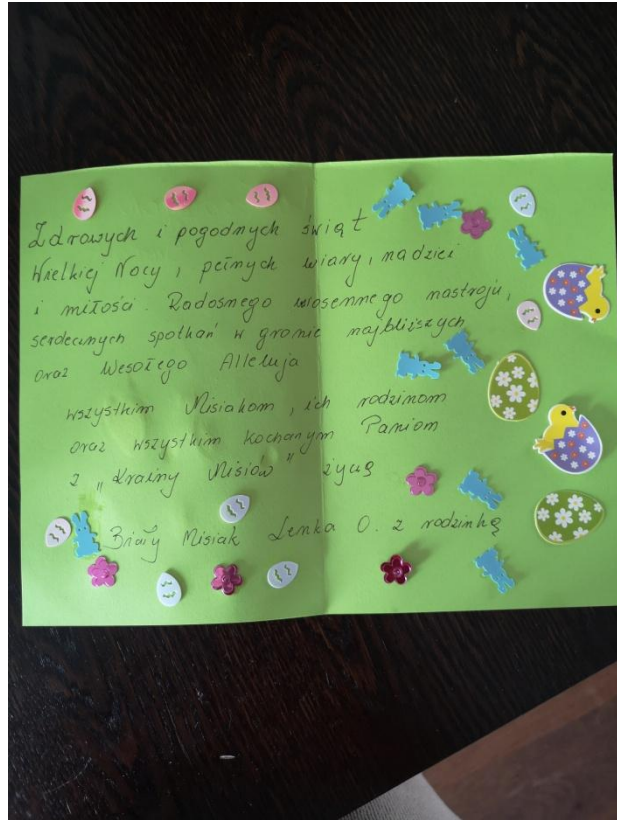 Zdrowych i pogodnych świąt
Wielkiej Nocy, pełnych wiary, nadziei
i miłości. Radosnego wiosennego nastroju,
serdecznych spotkań w gronie najbliższych
oraz Wesołego Alleluja
wszystkim Misiakom, ich rodzinom
oraz wszystkim Kochanym Paniom
z „Krainy Misiów" życzą
Biały Misiak Lenka O. z rodzinką